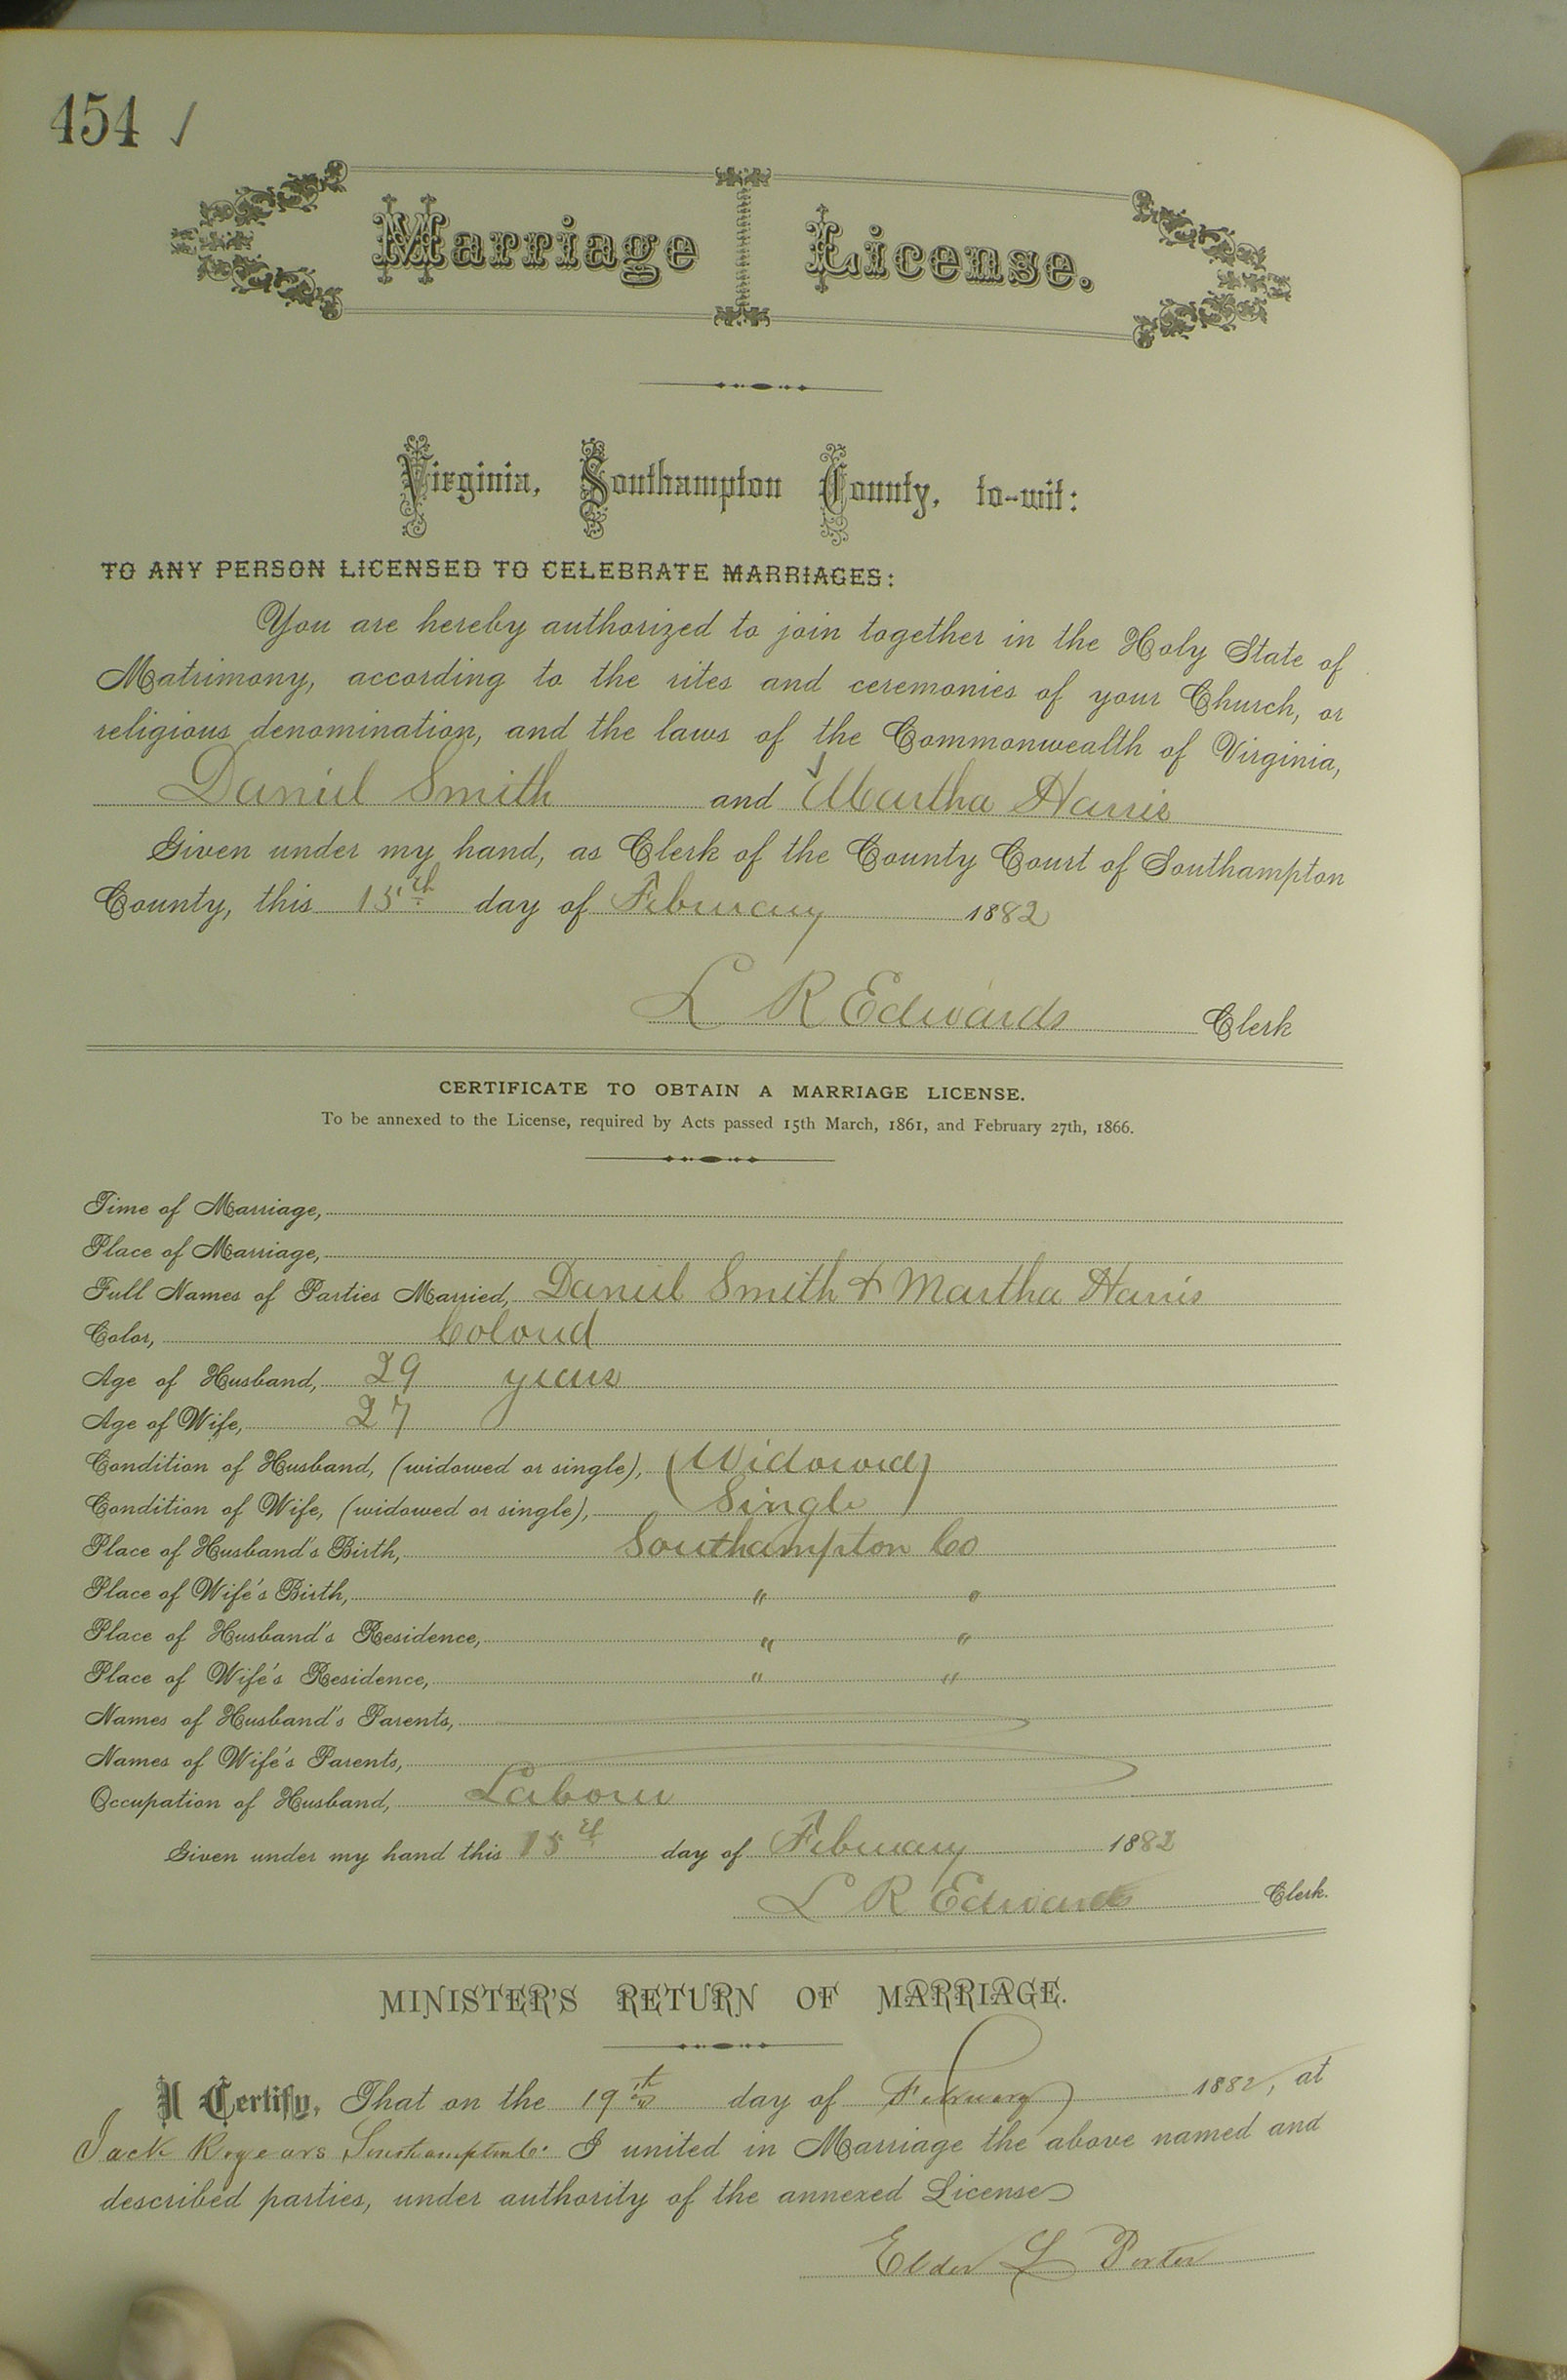 454 ✓
Marriage License.
Virginia, Southampton County, to-wit:
TO ANY PERSON LICENSED TO CELEBRATE MARRIAGES:
You are hereby authorized to join together in the Holy State of
Matrimony, according to the rites and ceremonies of your Church, or
religious denomination, and the laws of the Commonwealth of Virginia,
Daniel Smith and Martha Harris
Given under my hand, as Clerk of the County Court of Southampton
County, this 15th day of February 1882
L R Edwards Clerk
CERTIFICATE TO OBTAIN A MARRIAGE LICENSE.
To be annexed to the License, required by Acts passed 15th March, 1861, and February 27th, 1866.
Time of Marriage,
Place of Marriage,
Full Names of Parties Married, Daniel Smith & Martha Harris
Color, Colored
Age of Husband, 29 years
Age of Wife, 27
Condition of Husband, (widowed or single), (Widowed)
Condition of Wife, (widowed or single), Single
Place of Husband's Birth, Southampton Co
Place of Wife's Birth, " "
Place of Husband's Residence, " "
Place of Wife's Residence, " "
Names of Husband's Parents,
Names of Wife's Parents,
Occupation of Husband, Laborer
Given under my hand this 15th day of February 1882
L R Edwards Clerk.
MINISTER'S RETURN OF MARRIAGE.
I Certify, That on the 19th day of February 1882, at
Jack Southampton Co. I united in Marriage the above named and
described parties, under authority of the annexed License
Elder L Porter